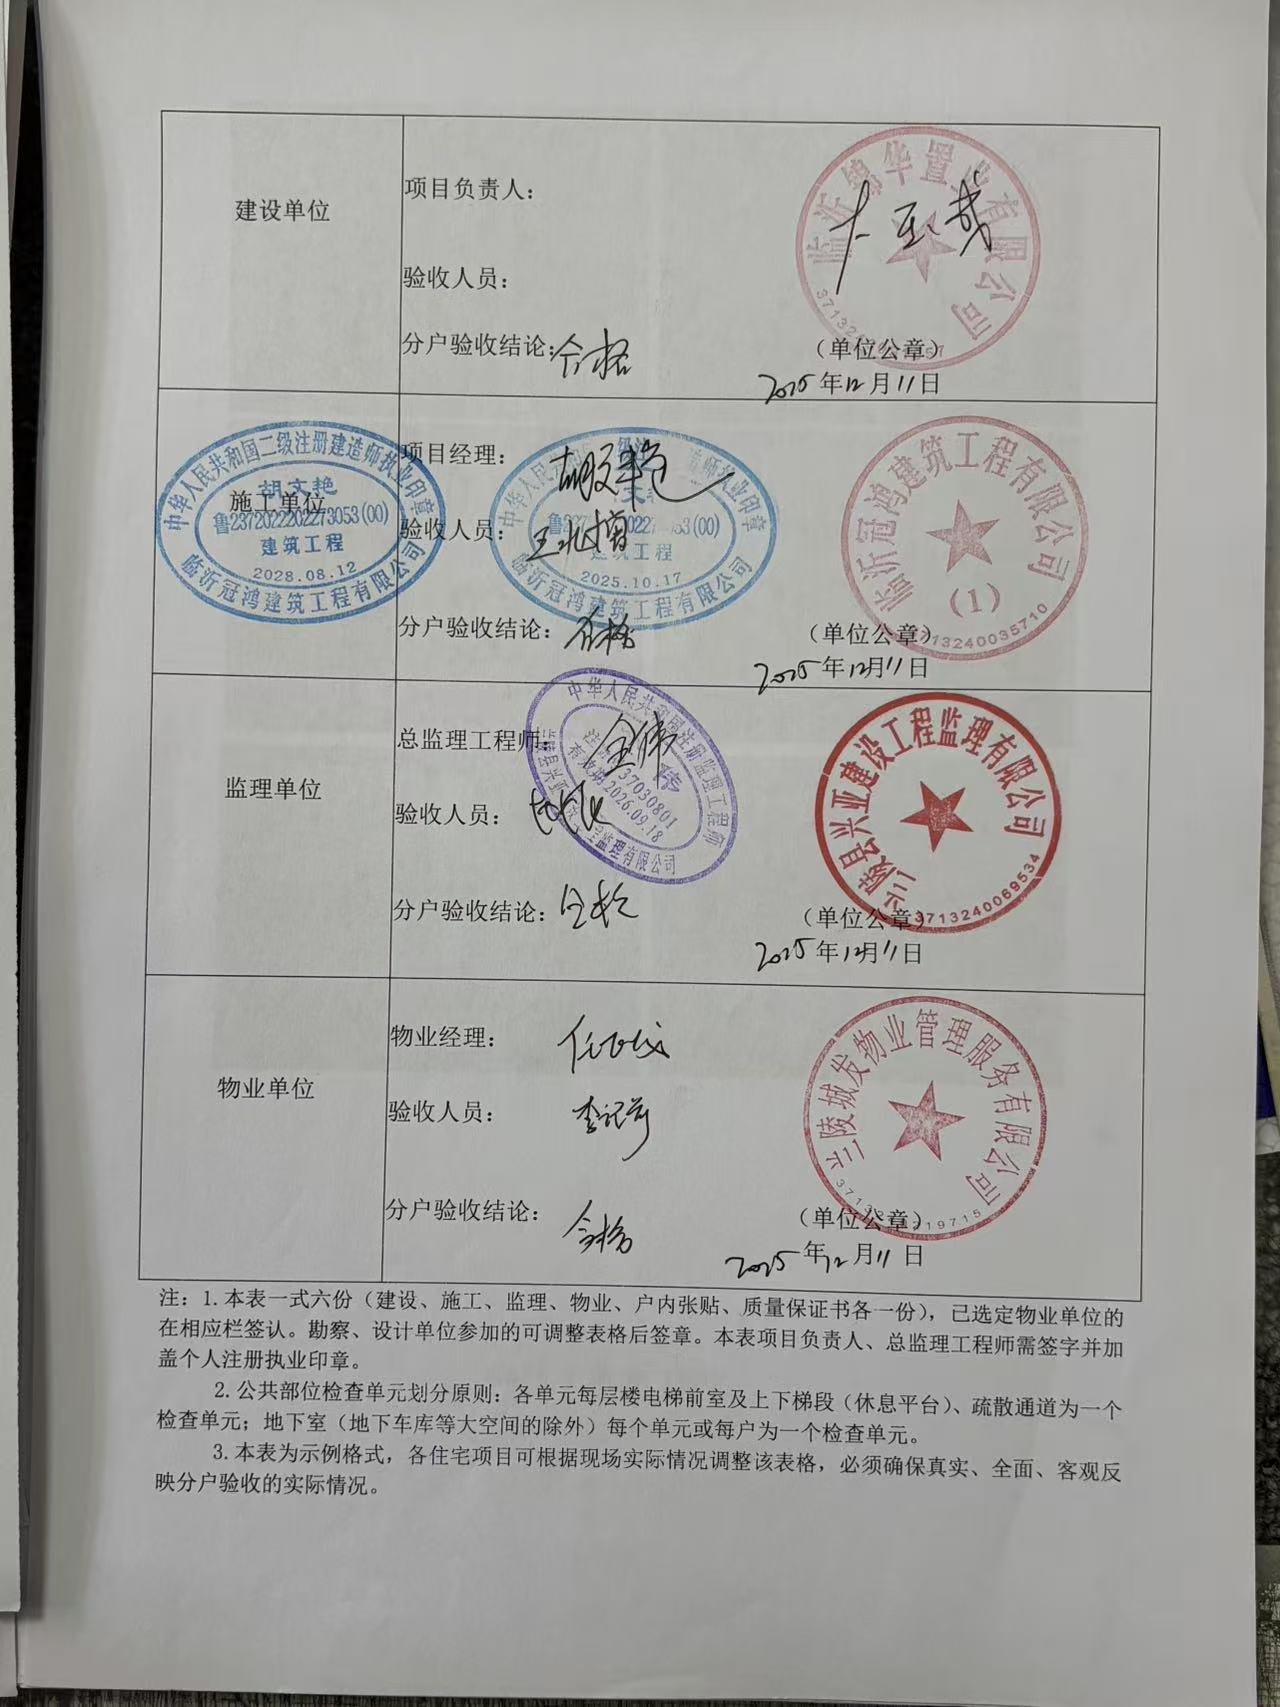 建设单位
项目负责人：
验收人员：
分户验收结论：合格
临沂锦华置业有限公司
（单位公章）
2025年12月11日
施工单位
中华人民共和国二级注册建造师执业印章
胡文艳
鲁2372022202273053(00)
建筑工程
2028.08.12
临沂冠鸿建筑工程有限公司
项目经理：胡文艳
中华人民共和国二级注册建造师执业印章
建筑工程
2025.10.17
临沂冠鸿建筑工程有限公司
验收人员：
分户验收结论：合格
临沂冠鸿建筑工程有限公司
(1)
3713240035710
（单位公章）
2025年12月11日
监理单位
总监理工程师：
中华人民共和国注册监理工程师
37030801
有效期2026.09.18
验收人员：
分户验收结论：合格
兰陵县兴亚建设工程监理有限公司
3713240069534
（单位公章）
2025年12月11日
物业单位
物业经理：
验收人员：
分户验收结论：合格
兰陵城发物业管理服务有限公司
（单位公章）
2025年12月11日
注：1.本表一式六份（建设、施工、监理、物业、户内张贴、质量保证书各一份），已选定物业单位的
在相应栏签认。勘察、设计单位参加的可调整表格后签章。本表项目负责人、总监理工程师需签字并加
盖个人注册执业印章。
2.公共部位检查单元划分原则：各单元每层楼电梯前室及上下梯段（休息平台）、疏散通道为一个
检查单元；地下室（地下车库等大空间的除外）每个单元或每户为一个检查单元。
3.本表为示例格式，各住宅项目可根据现场实际情况调整该表格，必须确保真实、全面、客观反
映分户验收的实际情况。